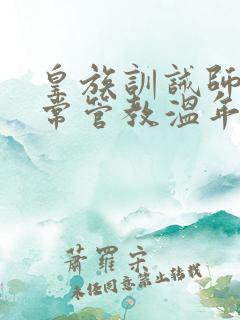 皇族訓誡師
常管教溫年
蕭羅宋
未经同意禁止转载